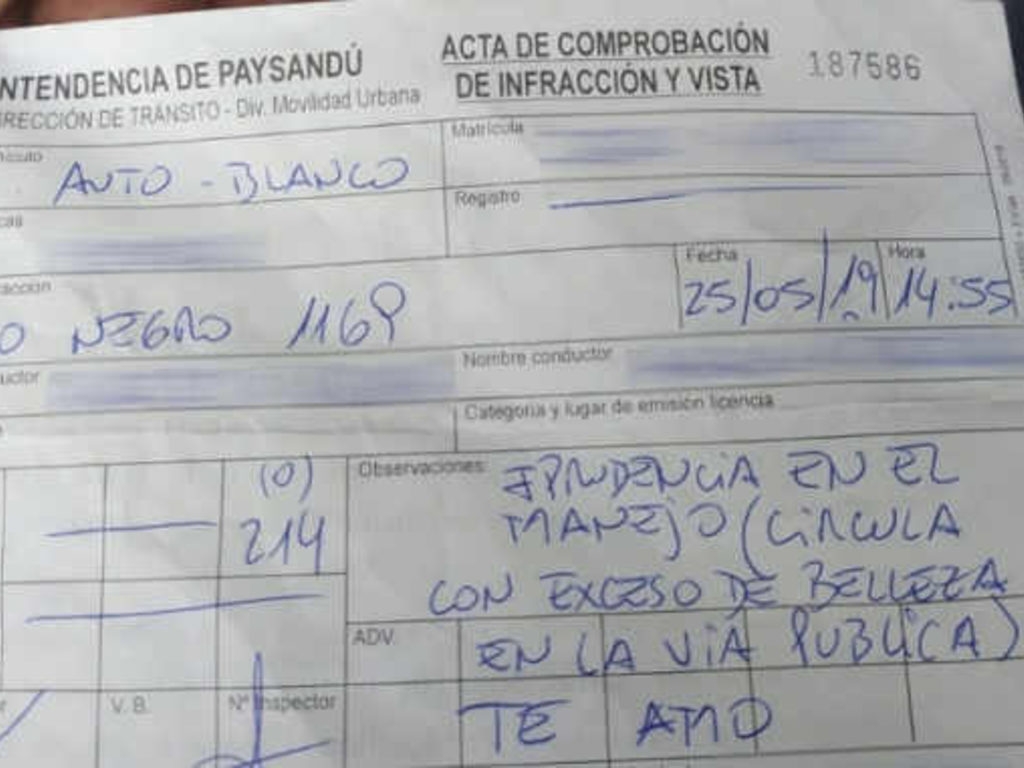 INTENDENCIA DE PAYSANDÚ
DIRECCIÓN DE TRÁNSITO - Div. Movilidad Urbana
ACTA DE COMPROBACIÓN
DE INFRACCIÓN Y VISTA
187586
AUTO - BLANCO
Matrícula
Registro
O NEGRO 1169
Fecha
25/05/19
Hora
14:55
Nombre conductor
Categoría y lugar de emisión licencia
(0)
214
Observaciones:
IPRUDENCIA EN EL
MANEJO (CIRCULA
CON EXCESO DE BELLEZA
ADV.
EN LA VIA PUBLICA)
V. B.
Nº Inspector
TE AMO